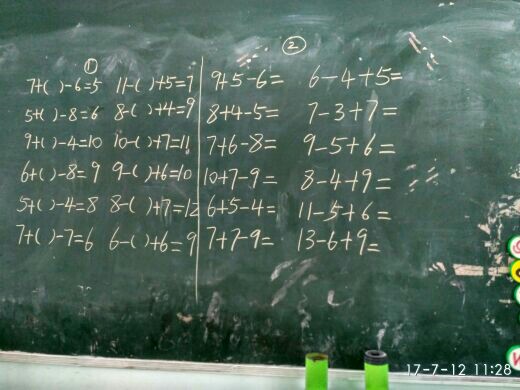 ① ②
7+( )-6=5 11-( )+5=7 9+5-6= 6-4+5=
5+( )-8=6 8-( )+4=9 8+4-5= 7-3+7=
9+( )-4=10 10-( )+7=11 7+6-8= 9-5+6=
6+( )-8=9 9-( )+6=10 10+7-9= 8-4+9=
5+( )-4=8 8-( )+7=12 6+5-4= 11-5+6=
7+( )-7=6 6-( )+6=9 7+7-9= 13-6+9=
17-7-12 11:28